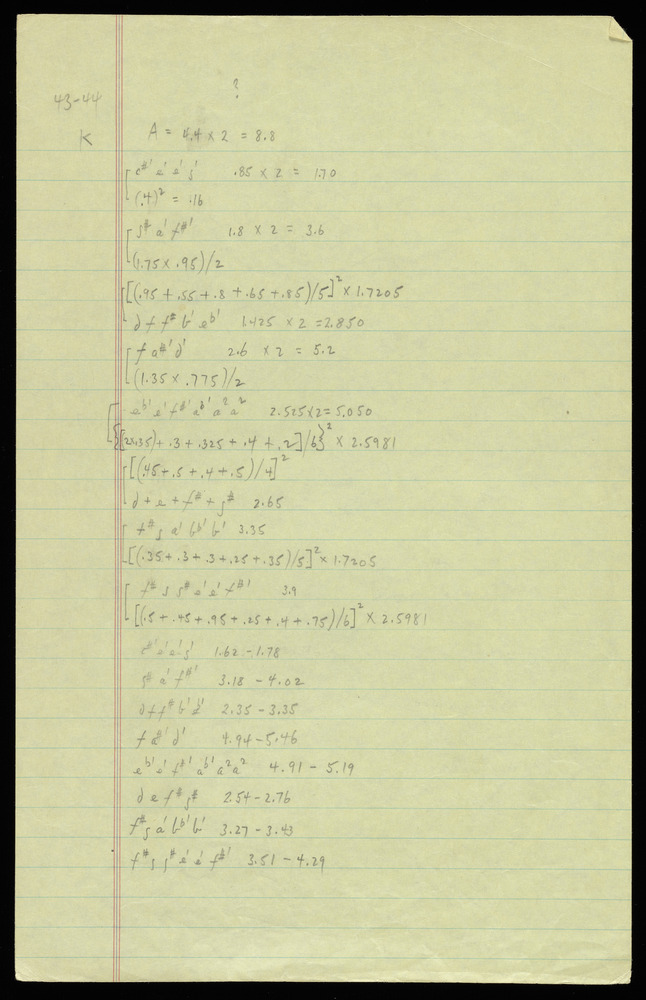 ?
43-44
K
A = 4.4 x 2 = 8.8
c#' e' e' g' .85 x 2 = 1.70
(.4)² = .16
g# a' f#' 1.8 x 2 = 3.6
(1.75 x .95)/2
[(.95 + .55 + .8 + .65 + .85)/5]² x 1.7205
d f f# b' eb' 1.425 x 2 = 2.850
f a#' d' 2.6 x 2 = 5.2
(1.35 x .775)/2
eb' e' f#' ab' a² a² 2.525 x 2 = 5.050
+ .3 + .325 + .4 + .2]/6}² x 2.5981
[(.45 + .5 + .4 + .5)/4]²
d + e + f# + g# 2.65
f# g a' bb' b' 3.35
[(.35 + .3 + .3 + .25 + .35)/5]² x 1.7205
f# g g# e' e' f#' 3.9
[(.5 + .45 + .95 + .25 + .4 + .75)/6]² x 2.5981
c#' e' e' g' 1.62 - 1.78
g# a' f#' 3.18 - 4.02
d f f# b' 2.35 - 3.35
f a#' d' 4.94 - 5.46
eb' e' f#' ab' a² a² 4.91 - 5.19
d e f# g# 2.54 - 2.76
f# g a' bb' b' 3.27 - 3.43
f# g g# e' e' f#' 3.51 - 4.29